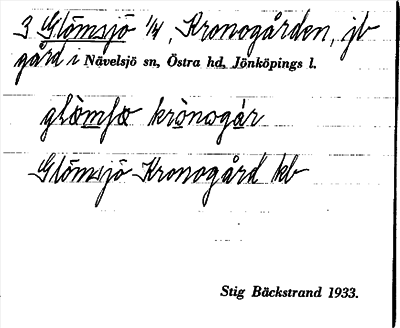 3 Glömsjö 1/4, Kronogården, jb
gård i Nävelsjö sn, Östra hd, Jönköpings l.
glömsœ krònogár
Glömsjö Kronogård kb
Stig Bäckstrand 1933.